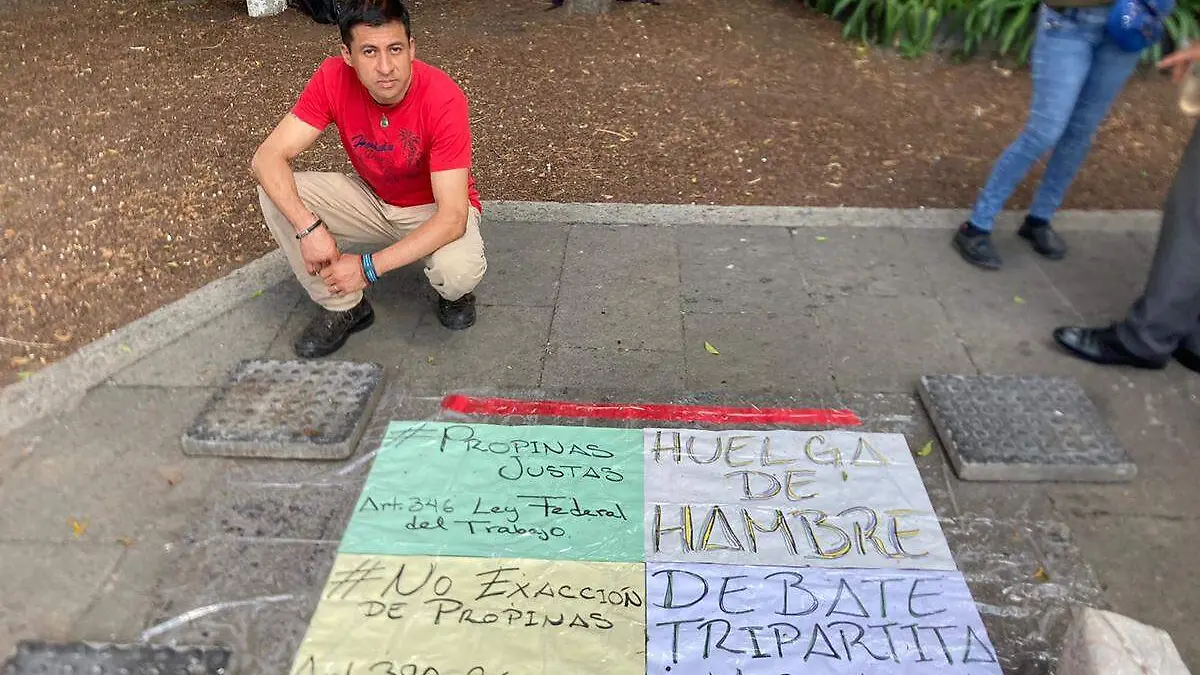 #PROPINAS
JUSTAS
Art. 346 Ley Federal
del Trabajo.
HUELGA
DE
HAMBRE
#NO EXACCIÓN
DE PROPINAS
DEBATE
TRIPARTITA